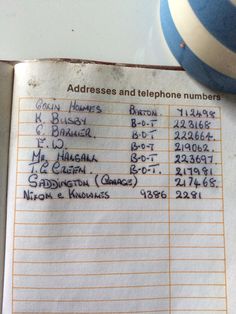 Addresses and telephone numbers
Colin Holmes Burton. 712498
K. Busby B-O-T 223168
G. Barker. B-O-T 222664.
E.W. B-O-T 219062.
Mr. Halsall B-O-T 223697.
T.G Green. B-O-T. 217981
Saddington (Garage) 217468.
Nixon & Knowles 9386 2281